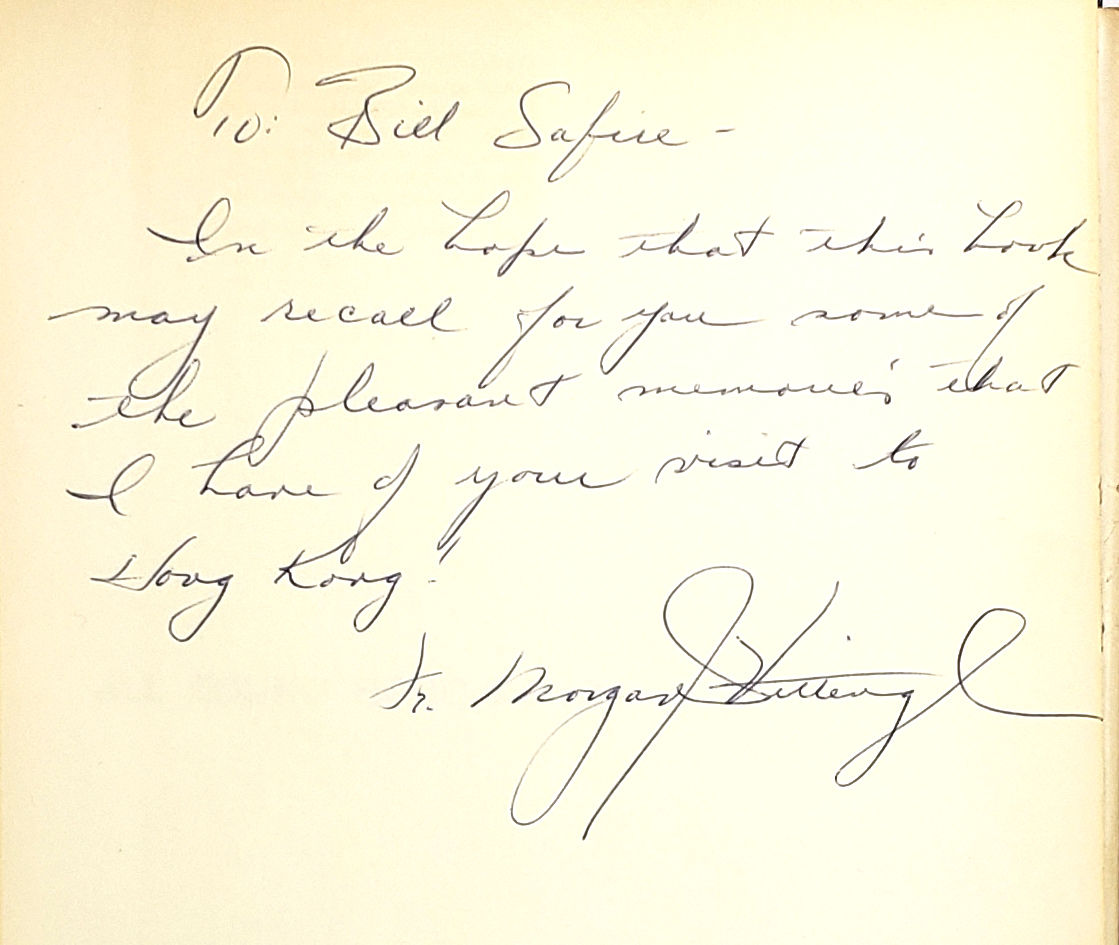 To: Bill Safire -
In the hope that this book
may recall for you some of
the pleasant memories that
I have of your visit to
Hong Kong!
Fr. Morgan J Vittengl